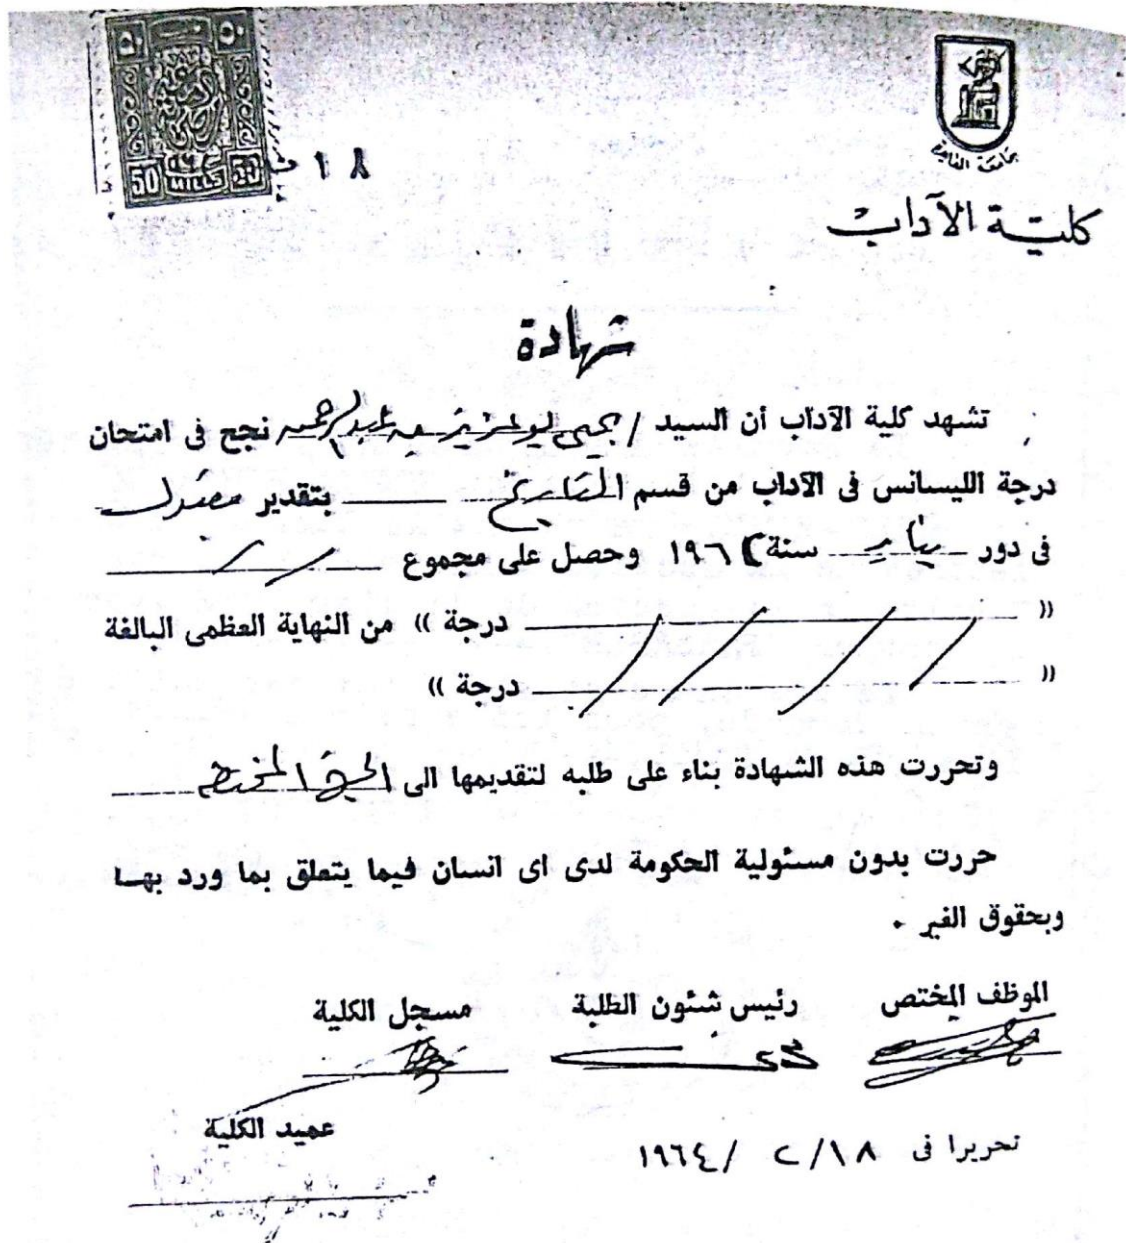 ٥٠ ٥٠
50 MILLS 50
١٨
جامعة القاهرة
كليـة الآداب
شهادة
تشهد كلية الآداب أن السيد / يحيى بوعزيز بن عبد الرحمن نجح فى امتحان
درجة الليسانس فى الآداب من قسم التاريخ بتقدير مقبول
فى دور يناير سنة ١٩٦ وحصل على مجموع
« درجة » من النهاية العظمى البالغة
« درجة »
وتحررت هذه الشهادة بناء على طلبه لتقديمها الى الجهة المختصة
حررت بدون مسئولية الحكومة لدى اى انسان فيما يتعلق بما ورد بهـا
وبحقوق الغير .
الموظف المختص رئيس شئون الطلبة مسجل الكلية
عميد الكلية
تحريرا فى ١٨/ ٢ /١٩٦٤